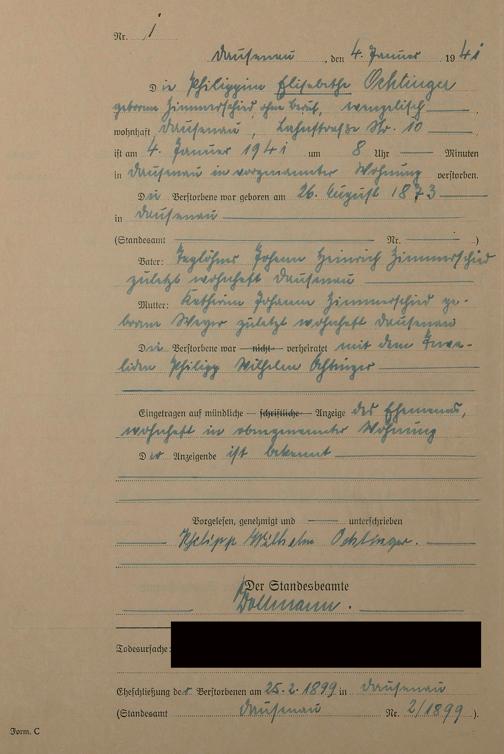 Nr. 1
Dausenau, den 4. Januar 1941
Die Philippine Elisabethe Oehlinger
geborene Zimmerschied, ohne Beruf, evangelisch
wohnhaft Dausenau, Lahnstraße Nr. 10
ist am 4. Januar 1941 um 8 Uhr — Minuten
in Dausenau in vorgenannter Wohnung verstorben.
Die Verstorbene war geboren am 26. August 1873
in Dausenau
(Standesamt Nr. )
Vater: Taglöhner Johann Heinrich Zimmerschied
zuletzt wohnhaft Dausenau
Mutter: Katharine Johanna Zimmerschied ge-
borene zuletzt wohnhaft Dausenau
Die Verstorbene war — nicht — verheiratet mit dem Inva-
liden Philipp Wilhelm Oehlinger
Eingetragen auf mündliche — schriftliche — Anzeige des Ehemanns,
wohnhaft in obengenannter Wohnung
Der Anzeigende ist bekannt
Vorgelesen, genehmigt und — unterschrieben
Philipp Wilhelm Oehlinger.
Der Standesbeamte
Todesursache:
Eheschließung der Verstorbenen am 25.2.1899 in Dausenau
(Standesamt Dausenau Nr. 2/1899 ).
Form. C